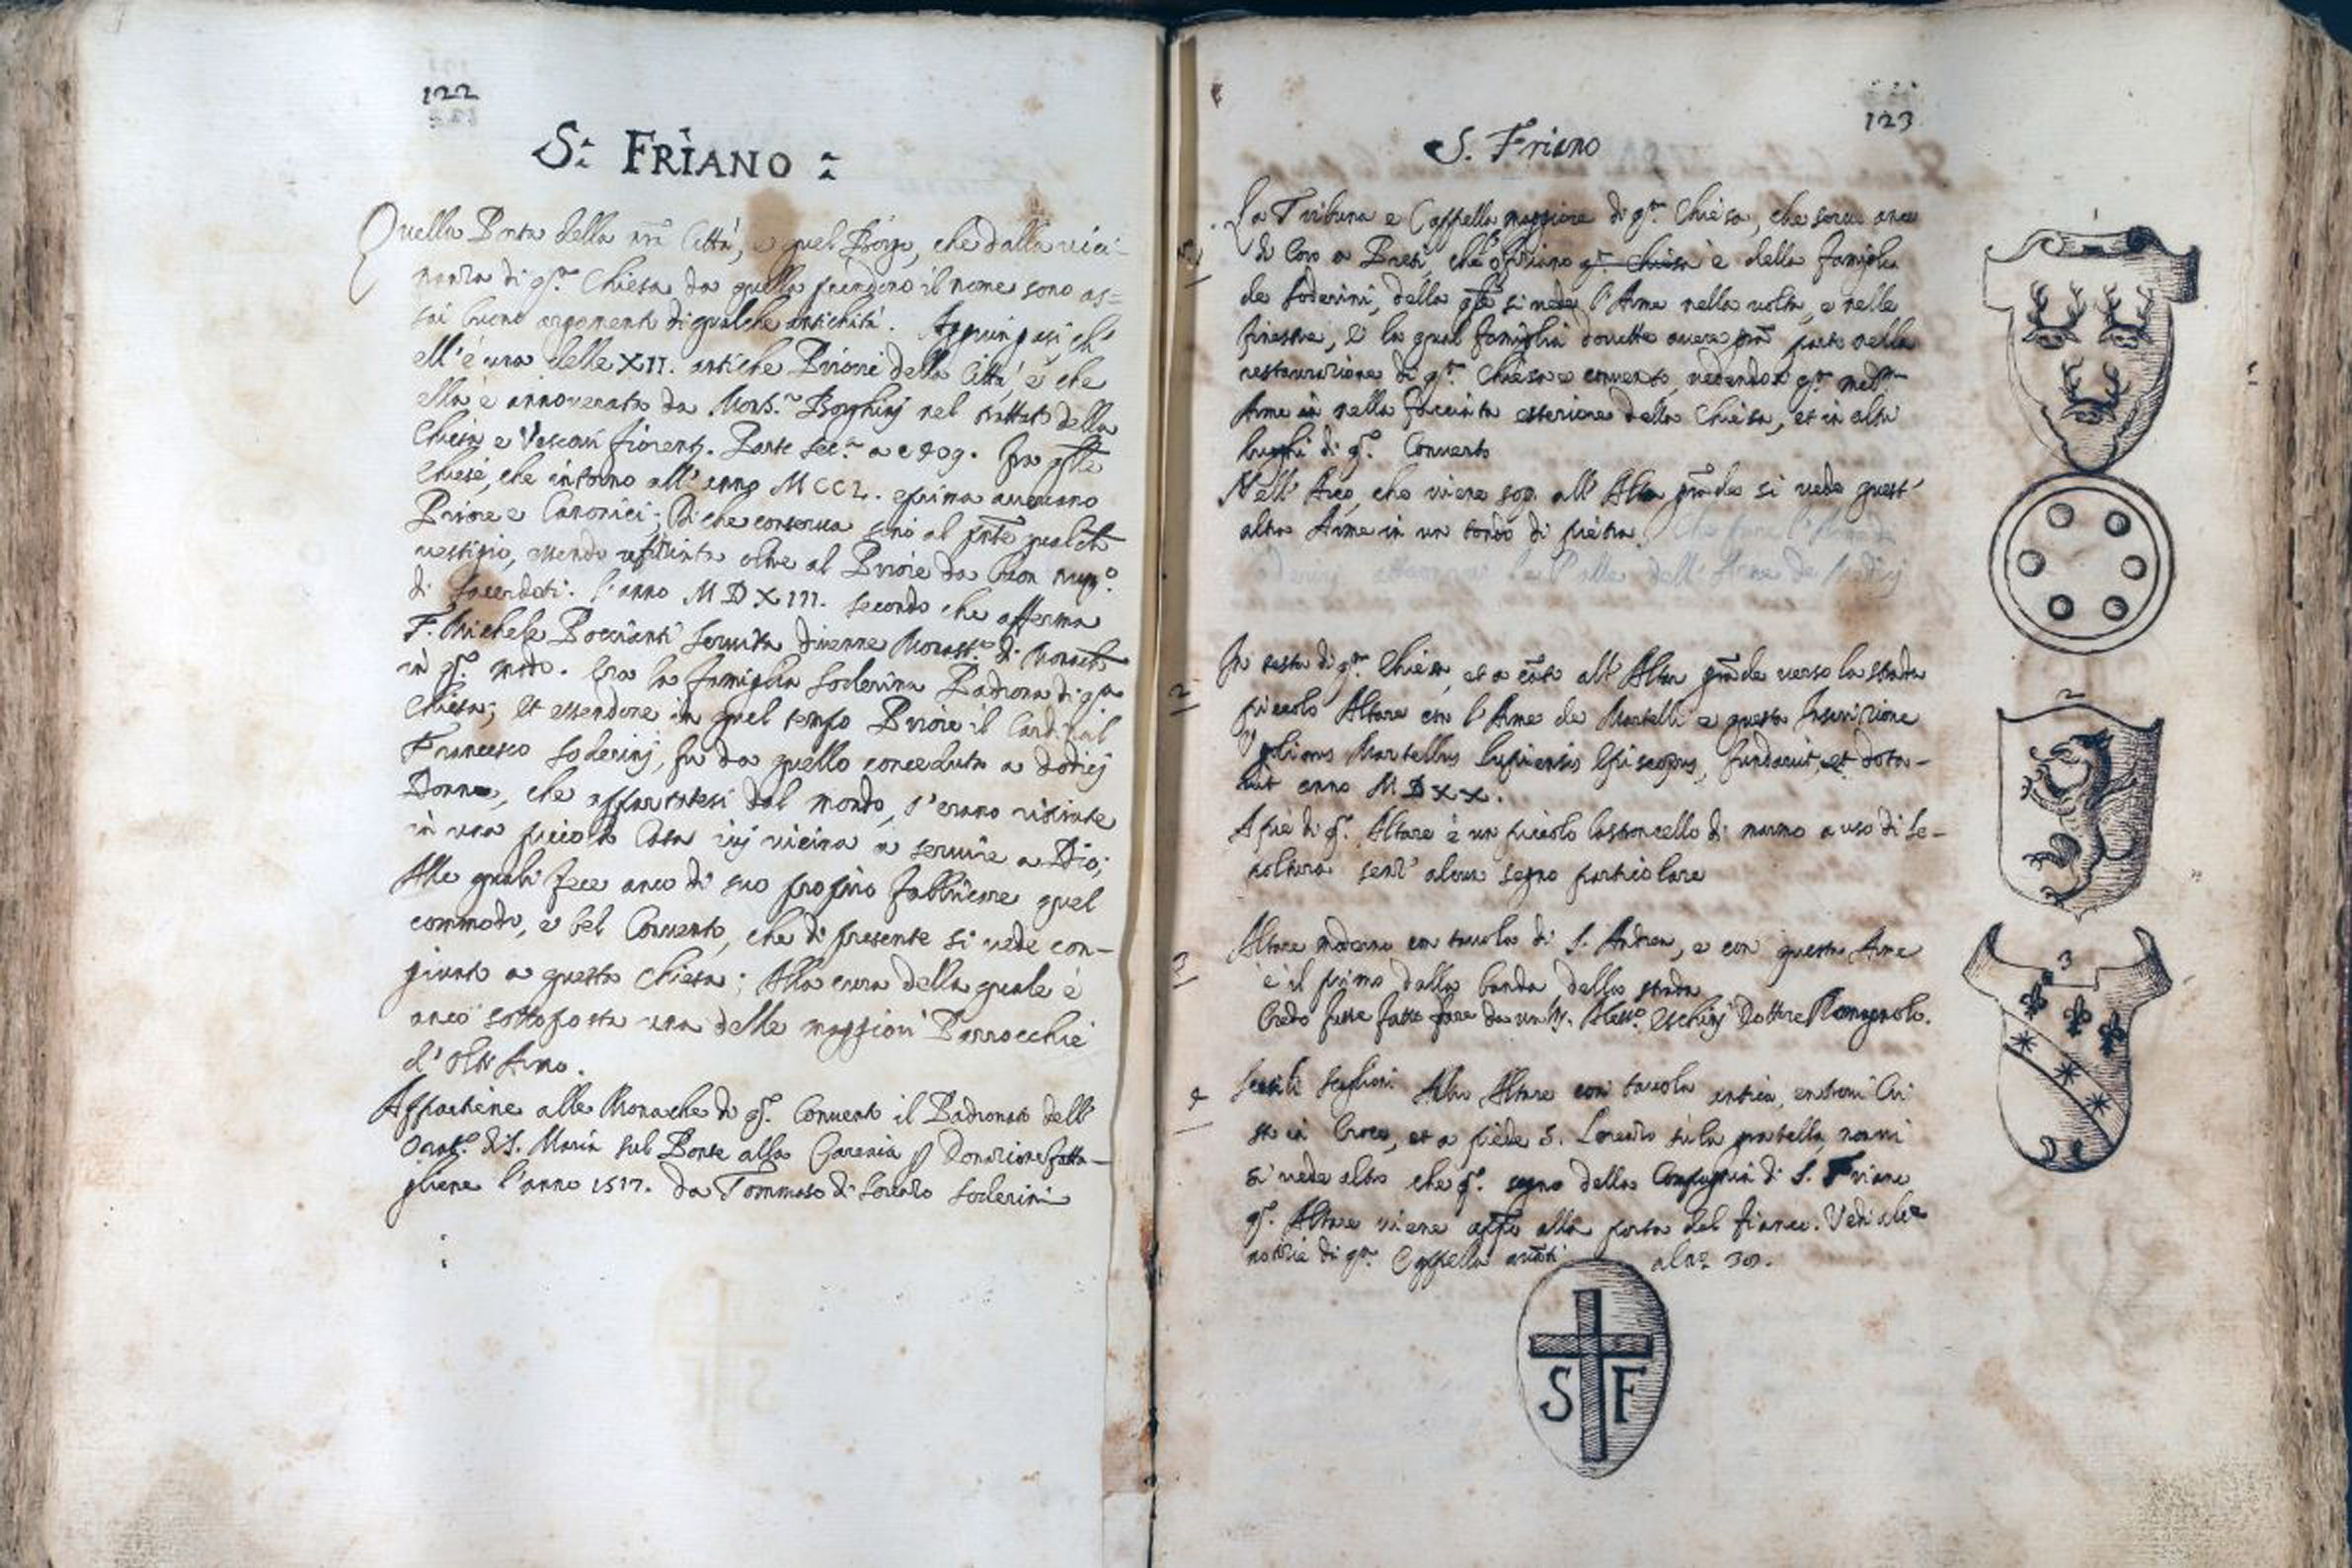 122
S. FRIANO
Quella Porta della nra Città, e quel Borgo, che dalla vici-
nanza di qta Chiesa da quella prendono il nome sono as=
sai buoni argomenti di qualche antichità. Aggiungasi, ch'
ell'è una delle XII. antiche Priorie della Città, e che
ella è annoverata da Mons.r Borghinj nel trattato della
Chiesa e Vescovi fiorent. Parte sec.a a c 409. fra qlle
Chiese, che intorno all'anno MCCL. e prima avevano
Priore e Canonici; Di che conserva sino al pnte qualche
vestigio, essendo ufiziata oltre al Priore da buon num.o
di Sacerdoti. l'anno MDXIII. secondo che afferma
F. Michele Poccianti Servita divenne Monast.o di Monache
in q.o modo. Era la famiglia Soderina Padrona di q.a
Chiesa; et essendone in quel tempo Priore il Cardinal
Francesco Soderinj, fu da quello conceduta a dodicj
Donne, che appartatesi dal mondo, s'erano ritirate
in una piccola Casa ivj vicina a servire a Dio;
Alle quali fece anco di suo proprio fabbricare quel
commodo, e bel Convento, che di presente si vede con-
giunto a questa Chiesa; Alla cura della quale è
anco sottoposta una delle maggiori Parrocchie
d'Oltr'Arno.
Appartiene alle Monache di q.o Convento il Padronato dell'
Orat.o di S. Maria sul Ponte alla Carraia p Donazione fatta-
gliene l'anno 1517. da Tommaso di Lorenzo Soderini
123
S. Friano
La Tribuna e Cappella maggiore di q.ta Chiesa, che serve anco
di Coro a Preti, che ofiziano q.ta Chiesa è della famiglia
de Soderini, della qle si vede l'Arme nella volta, e nelle
finestre, e la qual famiglia dovette avere gran parte nella
restaurazione di q.ta Chiesa e convento, vedendosi q.ta med.ma
Arme in nella facciata esteriore della Chiesa, et in altri
luoghi di q.o Convento
Nell'Arco, che viene sop. all'Altar grande si vede quest'
altra Arme in un tondo di pietra. che
le Palle dell'Arme de Medicj
2
In testa di q.ta Chiesa, et a canto all'Altar grande verso la strada
piccolo Altare con l'Arme de Martelli e questa Inscrizione
Martellus Episcopus, fundavit, et dota-
vit anno MDXX.
A piè di q.o Altare è un piccolo Cassoncello di marmo a uso di Se-
poltura senz'alcun segno particolare
3
Altare moderno con tavola di S. Andrea, e con questa Arme
è il primo dalla banda della strada
Credo fusse fatto fare da un M. Aless.o Dottore Romagnolo.
4
Altro Altare con tavola antica, entrovi Cri
sto in Croce, et a piede S. Lorenzo sù la gratella, non vi
si vede altro che q.o segno della Compagnia di S. Friano
q.o Altare viene appo alla porta del fianco. Vedi altre
notizie di q.ta Cappella avanti al n.o 30.
1
2
3
S F